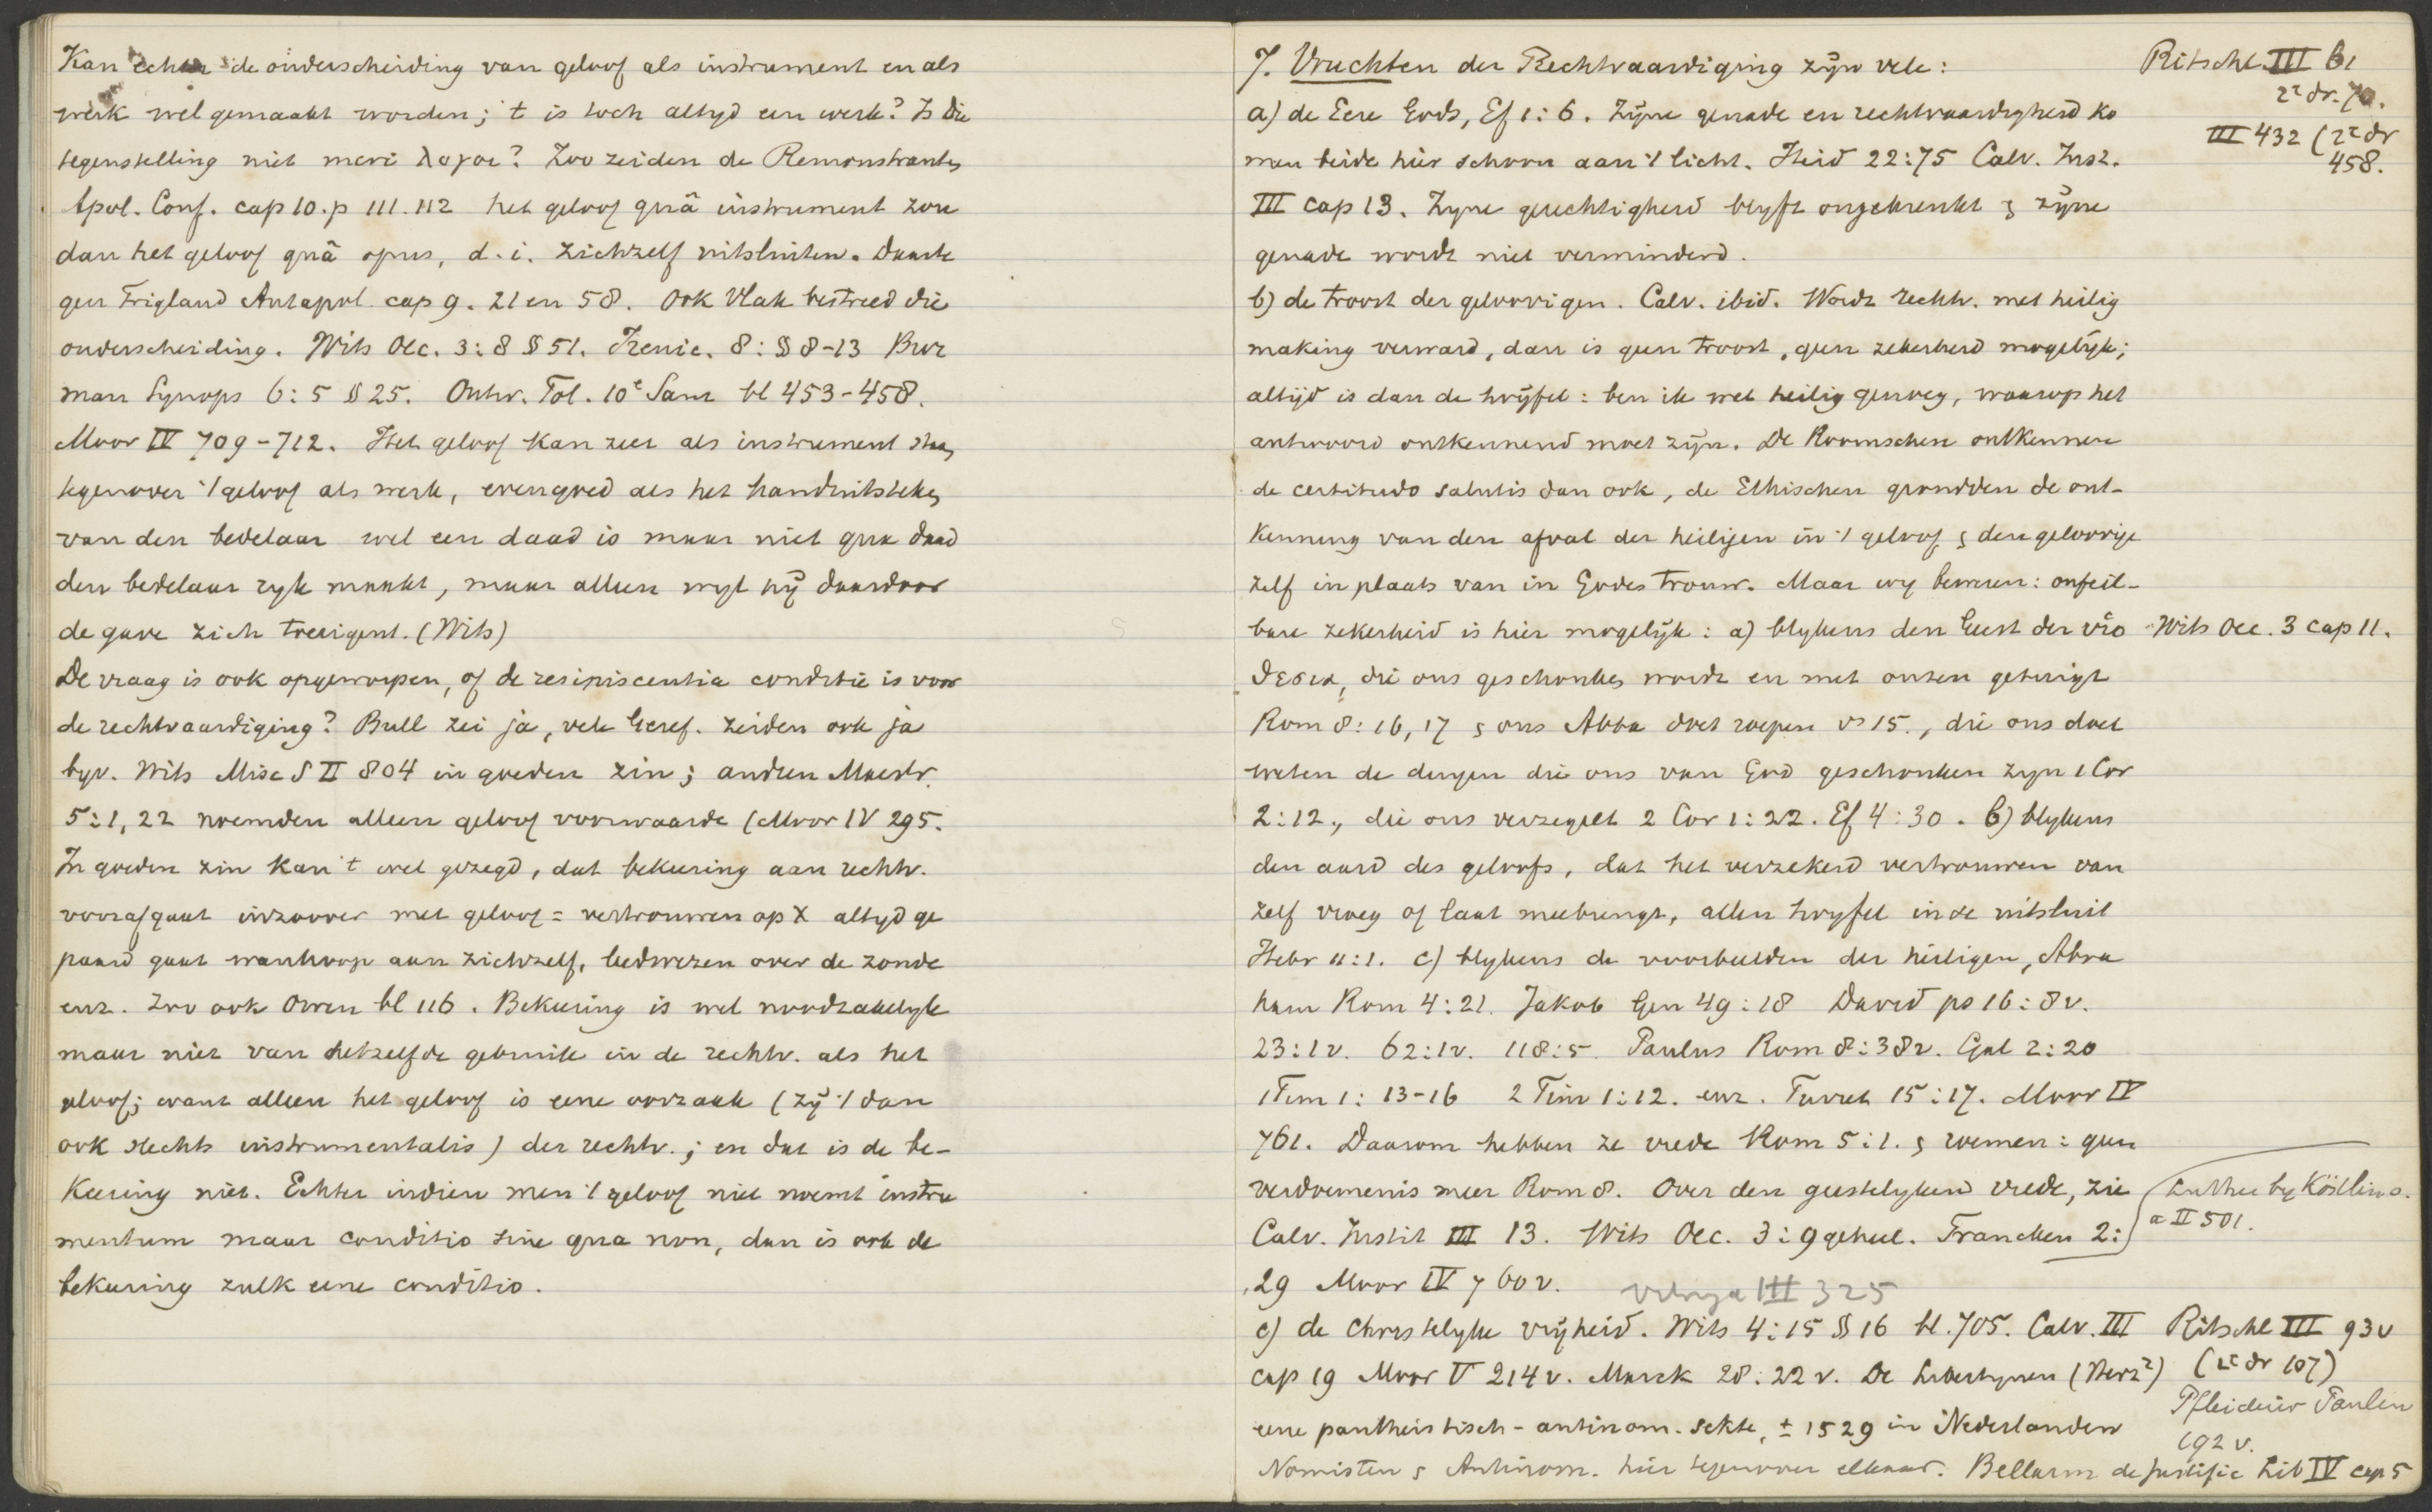 Kan echter de onderscheiding van geloof als instrument en als
werk wel gemaakt worden; 't is toch altyd een werk? Is die
tegenstelling niet meri λογοι? Zoo zeiden de Remonstranten
Apol. Conf. cap 10. p 111. 112 het geloof quâ instrument zou
dan het geloof quâ opus, d. i. zichzelf uitsluiten. Daarte
gen Trigland Antapol. cap 9. 21 en 58. Ook Vlak bestreed die
onderscheiding. Wits Oec. 3:8 § 51. Irenic. 8: § 8-13 Bur
man Synops 6:5 § 25. Ontw. Tol. 10e Sam bl 453-458.
Moor IV 709-712. Het geloof kan zeer als instrument staan
tegenover 't geloof als werk, evengoed als het handuitsteken
van den bedelaar wel een daad is maar niet qua daad
den bedelaar ryk maakt, maar alleen wyl hij daardoor
de gave zich toeëigent. (Wits)
De vraag is ook opgeworpen, of de resipiscentia conditie is voor
de rechtvaardiging? Bull zei ja, vele Geref. zeiden ook ja
byv. Wits Misc S II 804 in goeden zin; andren Maestr.
5:1, 22 noemden alleen geloof voorwaarde (Moor IV 295.
In goeden zin kan 't wel gezegd, dat bekeering aan rechtv.
voorafgaat inzoover met geloof = vertrouwen op X altyd ge
paard gaat wanhoop aan zichzelf, leedwezen over de zonde
enz. Zoo ook Owen bl 116. Bekeering is wel noodzakelyk
maar niet van hetzelfde gebruik in de rechtv. als het
geloof; want alleen het geloof is eene oorzaak (zij 't dan
ook slechts instrumentalis) der rechtv.; en dat is de be-
keering niet. Echter indien men 't geloof niet noemt instru
mentum maar conditio sine qua non, dan is ook de
bekeering zulk eene conditio.
7. Vruchten der Rechtvaardiging zijn vele:
Ritschl III 61
2e dr. 70.
III 432 (2e dr
458.
a) de Eere Gods, Ef 1:6. Zijne genade en rechtvaardigheid ko
men beide hier schoon aan 't licht. Heid 22:75 Calv. Inst.
III cap 13. Zyne gerechtigheid blyft ongekrenkt & zijne
genade wordt niet verminderd.
b) de troost der geloovigen. Calv. ibid. Wordt rechtv. met heilig
making verward, dan is geen troost, geen zekerheid mogelijk;
altijd is dan de twijfel: ben ik wel heilig genoeg, waarop het
antwoord ontkennend moet zijn. De Roomschen ontkennen
de certitudo salutis dan ook, de Ethischen gronden de ont-
kenning van den afval der heiligen in 't geloof & den geloovige
zelf in plaats van in Godes trouw. Maar wy beweren: onfeil-
bare zekerheid is hier mogelijk: a) blykens den Geest der υἱο
Wits Oec. 3 cap 11.
θεσια, die ons geschonken wordt en met onzen getuigt
Rom 8:16, 17 & ons Abba doet roepen vs 15., die ons doet
weten de dingen die ons van God geschonken zyn 1 Cor
2:12., die ons verzegelt 2 Cor 1:22. Ef 4:30. b) blykens
den aard des geloofs, dat het verzekerd vertrouwen van
zelf vroeg of laat meebrengt, allen twyfel in se uitsluit
Hebr 11:1. c) blykens de voorbeelden der heiligen, Abra
ham Rom 4:21. Jakob Gen 49:18 David ps 16:8v.
23:1v. 62:1v. 118:5. Paulus Rom 8:38v. Gal 2:20
1 Tim 1: 13-16 2 Tim 1:12. enz. Turret 15:17. Moor IV
761. Daarom hebben ze vrede Rom 5:1. & roemen: geen
verdoemenis meer Rom 8. Over den geestelyken vrede, zie
Luther by Köstlin
a II 501.
Calv. Instit III 13. Wits Oec. 3:9 geheel. Francken 2:
29 Moor IV 760v. Vitringa III 325
c) de Christelyke vrijheid. Wits 4:15 § 16 bl. 705. Calv. III
Ritschl III 93v
(2e dr 107)
cap 19 Moor V 214v. Marck 28:22v. De Libertynen (Herz2)
Pfleiderer Paulin
192 v.
eene pantheistisch-antinom. sekte, ± 1529 in Nederlanden
Nomisten & Antinom. hier tegenover elkaar. Bellarm de justific Lib IV cap 5